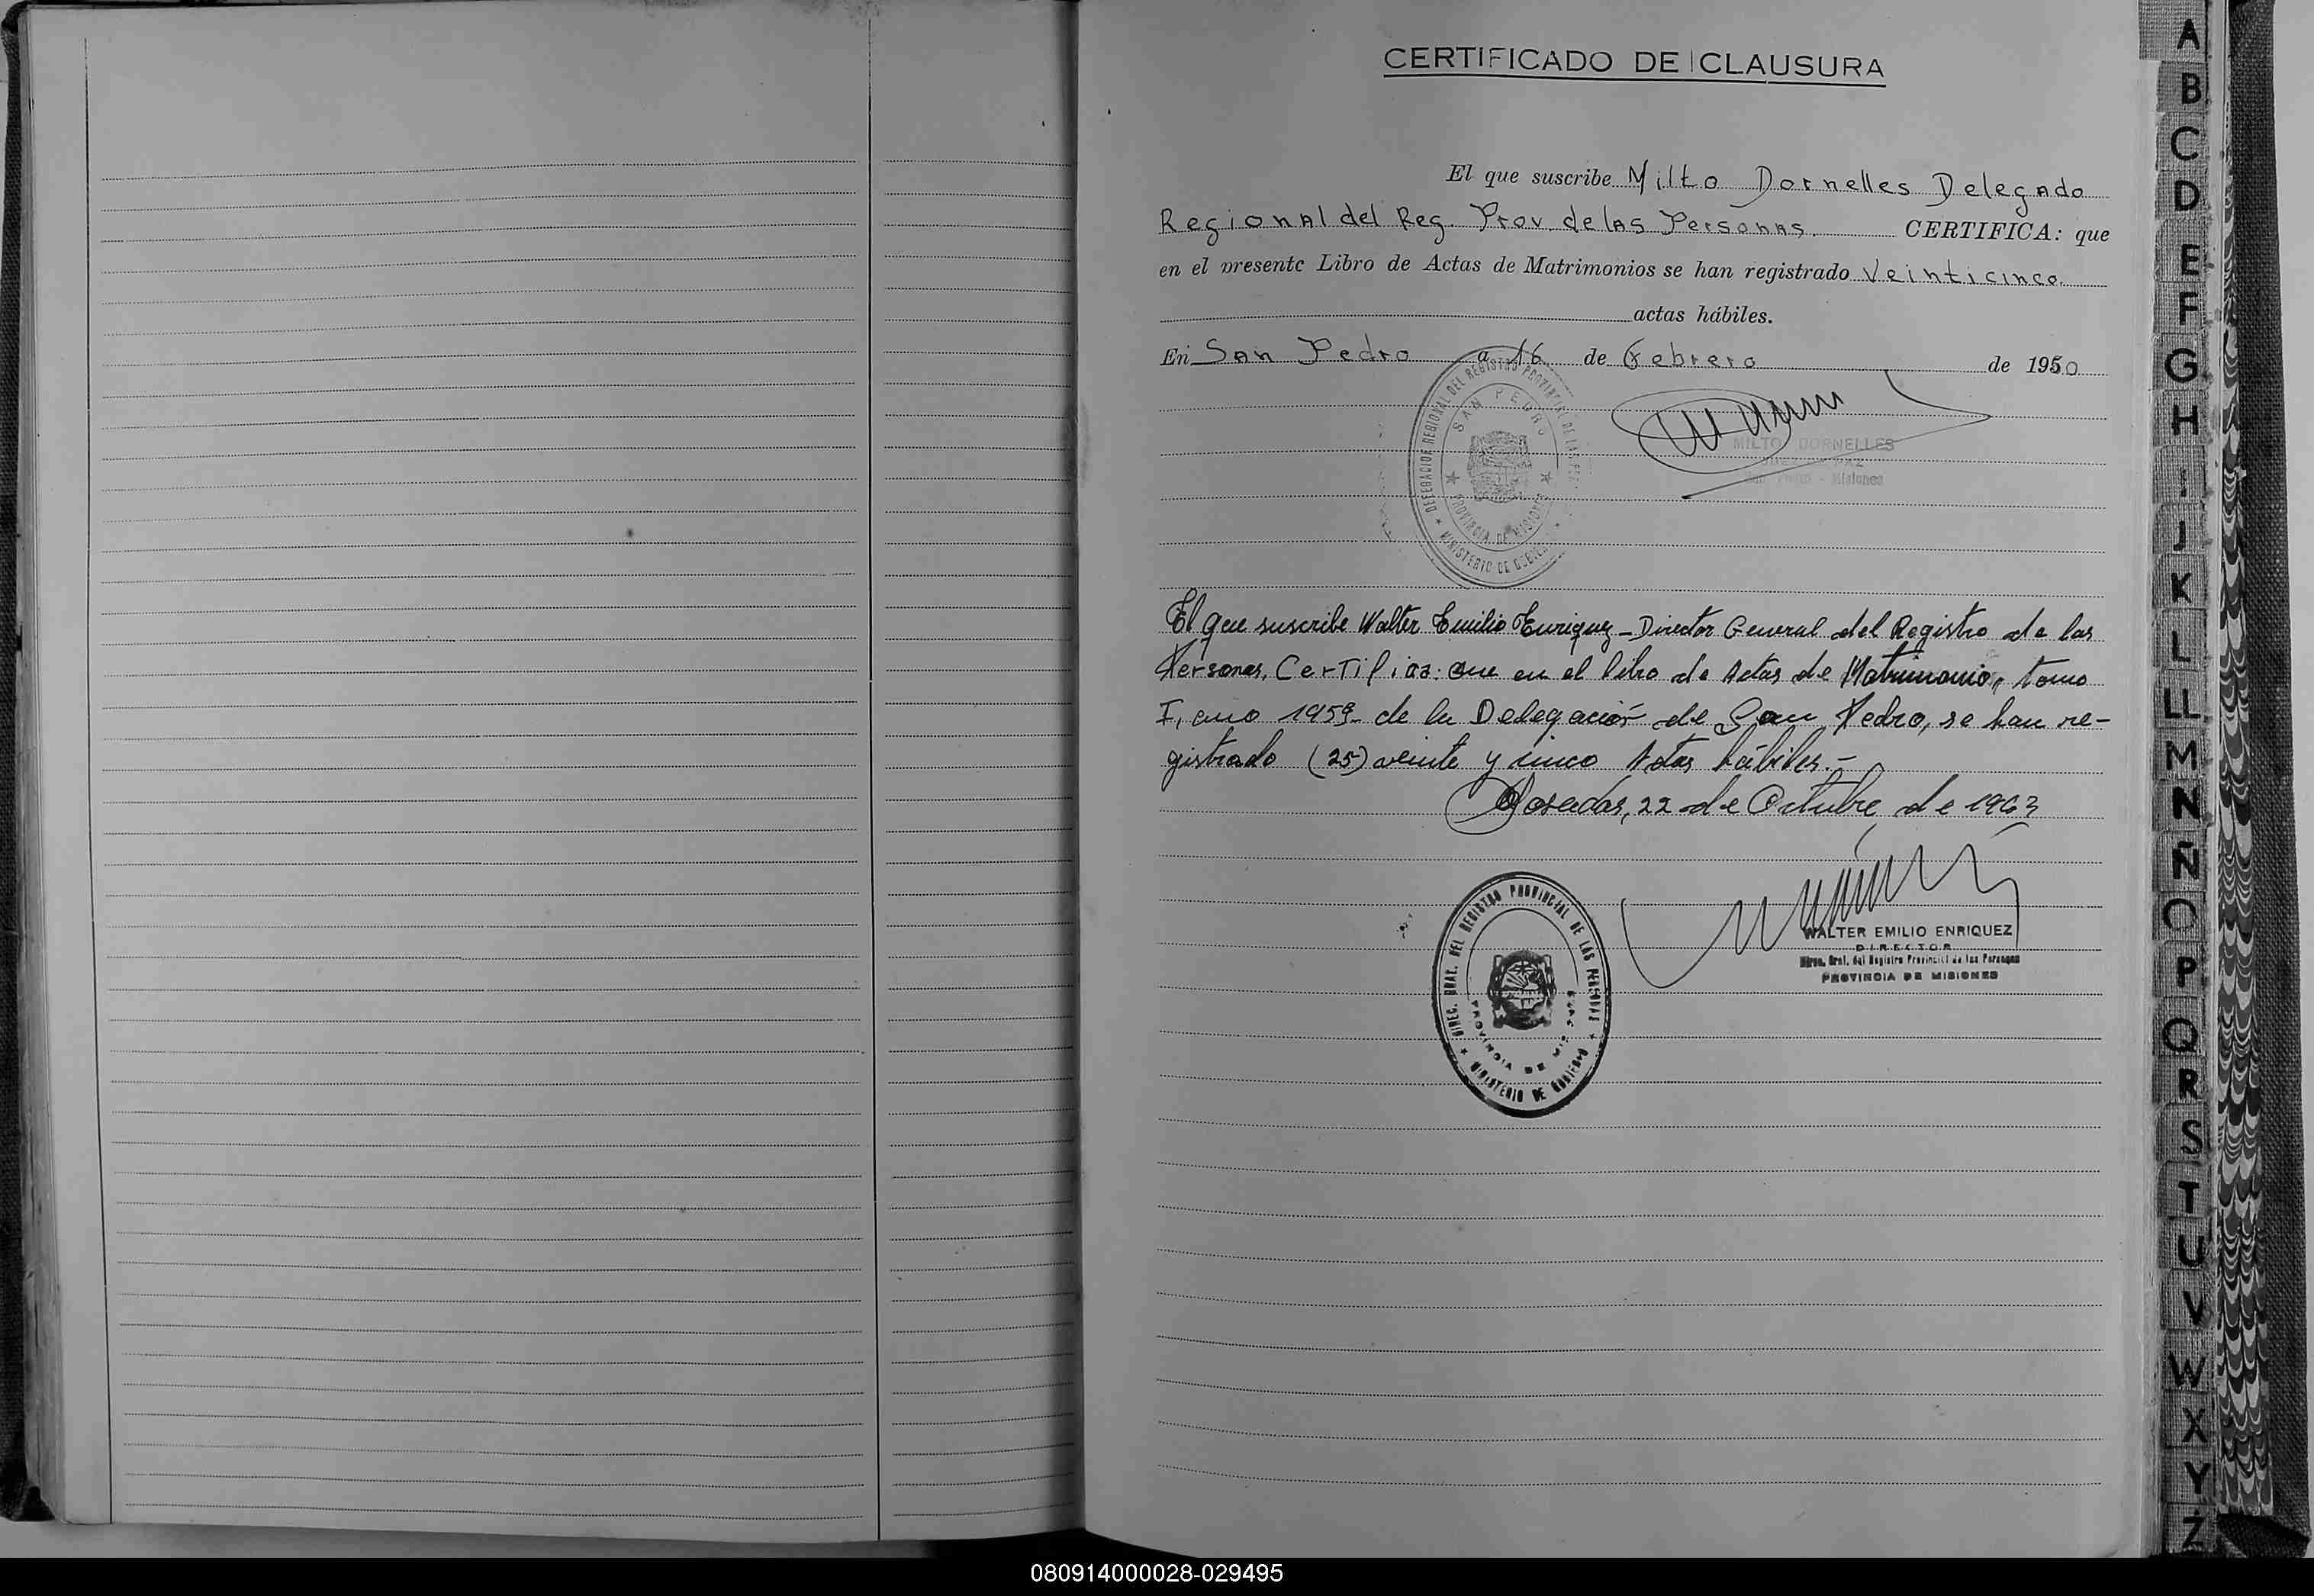 CERTIFICADO DE CLAUSURA
El que suscribe Milto Dornelles Delegado
Regional del Reg. Prov. de las Personas. CERTIFICA: que
en el presente Libro de Actas de Matrimonios se han registrado Veinticinco.
actas hábiles.
En San Pedro a 16 de Febrero de 1960
DELEGACION REGIONAL DEL REGISTRO PROVINCIAL DE LAS
SAN PEDRO
PROVINCIA DE MISIONES
MINISTERIO DE GOBIERNO
MILTO DORNELLES
JUEZ DE PAZ
San Pedro - Misiones
El que suscribe Walter Emilio Enriquez - Director General del Registro de las
Personas, Certifica: que en el libro de Actas de Matrimonio, tomo
I, año 1959 - de la Delegación de San Pedro, se han re-
gistrado (25) veinte y cinco Actas hábiles.-
Posadas, 22 de Octubre de 1963
DIREC. GRAL. DEL REGISTRO PROVINCIAL DE LAS PERSONAS
PROVINCIA DE MISIONES
MINISTERIO DE GOBIERNO
WALTER EMILIO ENRIQUEZ
DIRECTOR
Direc. Gral. del Registro Provincial de las Personas
PROVINCIA DE MISIONES
A
B
C
D
E
F
G
H
I
J
K
L
LL
M
N
Ñ
O
P
Q
R
S
T
U
V
W
X
Y
Z
080914000028-029495